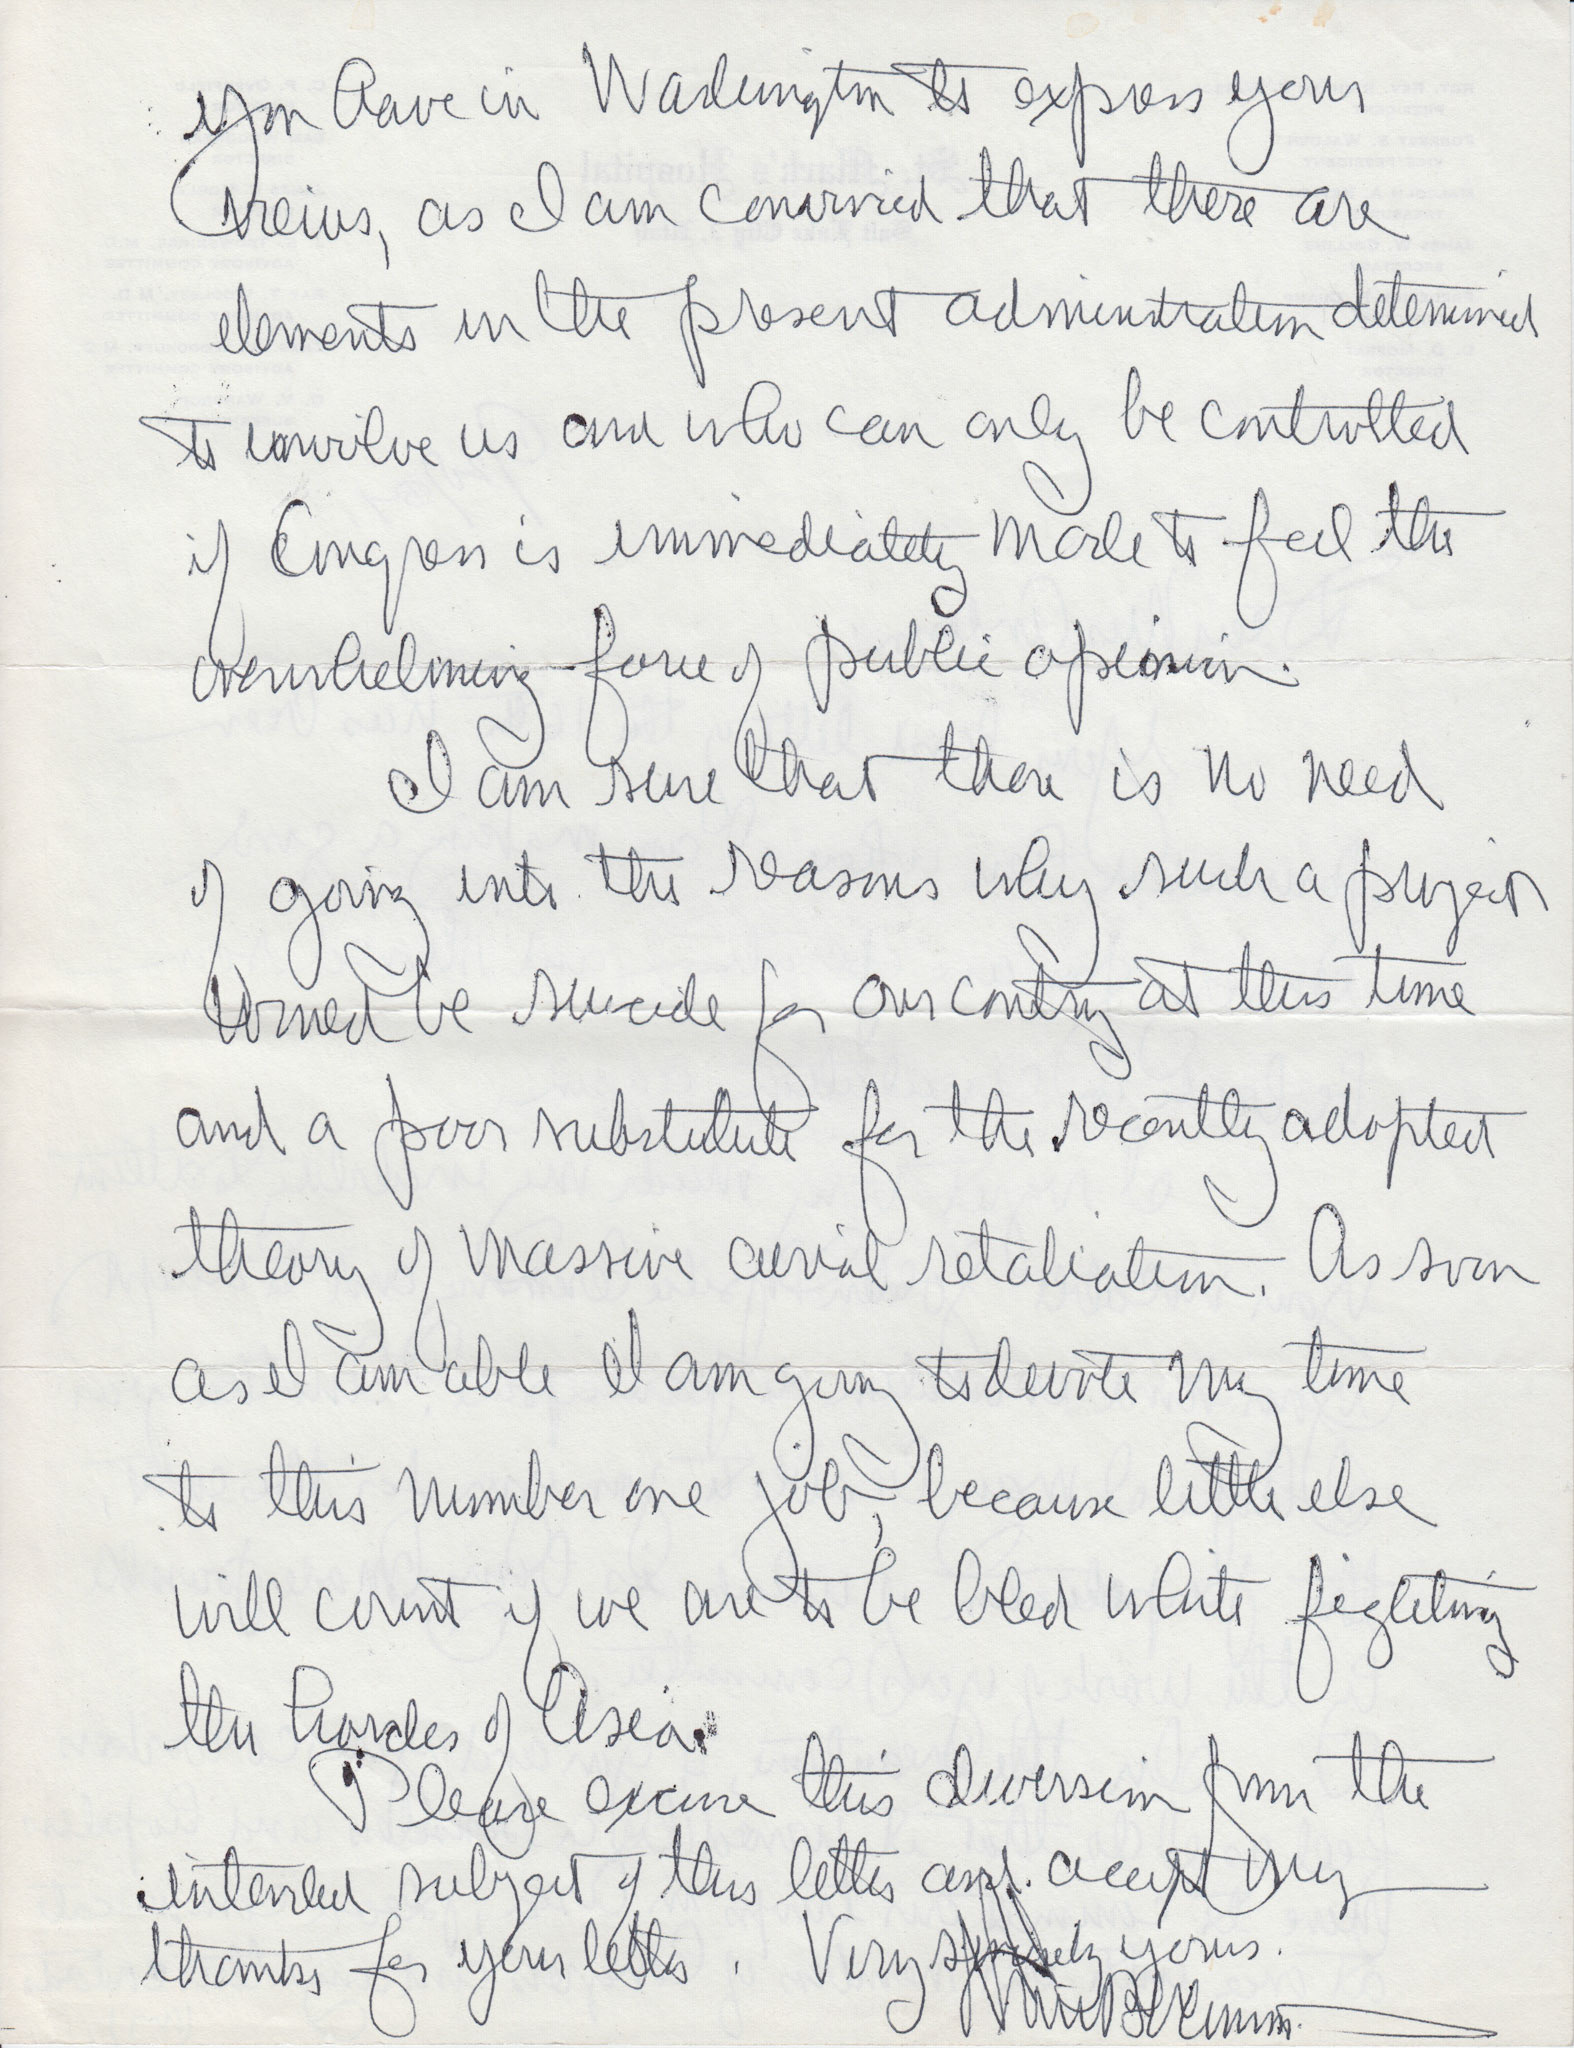 you have in Washington to express your
views, as I am convinced that there are
elements in the present administration determined
to involve us and who can only be controlled
if Congress is immediately made to feel the
overwhelming force of public opinion.
I am sure that there is no need
of going into the reasons why such a project
would be suicide for our contry at this time
and a poor substitute for the recently adopted
theory of massive aerial retaliation. As soon
as I am able I am going to devote my time
to this number one job, because little else
will count if we are to be bled white fighting
the hordes of Asia.
Please excuse this diversion from the
intended subject of this letter and accept my
thanks for your letter. Very sincerely yours.